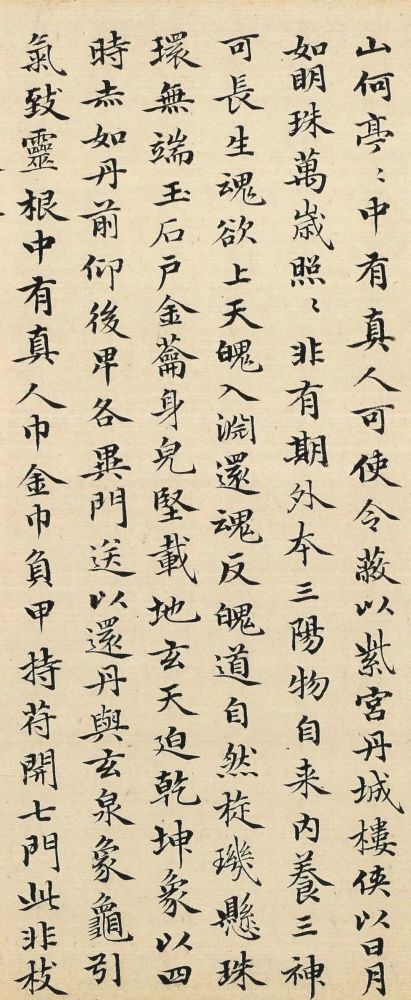 山何亭〻中有真人可使令蔽以紫宮丹城樓俠以日月
如明珠萬歲照〻非有期外夲三陽物自来內養三神
可長生魂欲上天魄入淵還魂反魄道自然㫌璣懸珠
環無端玉石戶金籥身皃堅載地玄天迫乾坤象以四
時赤如丹前仰後卑各異門送以還丹與玄泉象龜引
氣致靈根中有真人巾金巾負甲持苻開七門此非枝